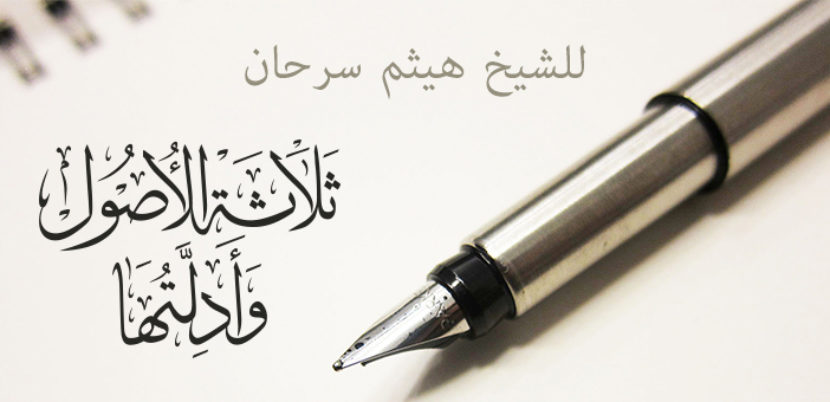 للشيخ هيثم سرحان
ثَلَاثَةُ الأُصُولِ
وَأَدِلَّتُهَا